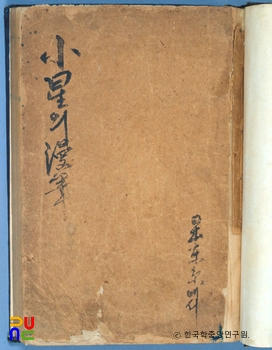 小星의 漫筆
東京에서
© 한국학중앙연구원